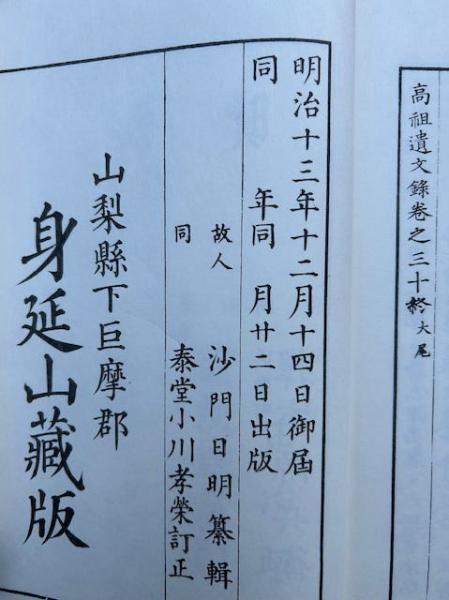 高祖遺文錄卷之三十終大尾
明治十三年十二月十四日御屆
同年同月廿二日出版
故人沙門日明纂輯
同泰堂小川孝榮訂正
山梨縣下巨摩郡
身延山藏版